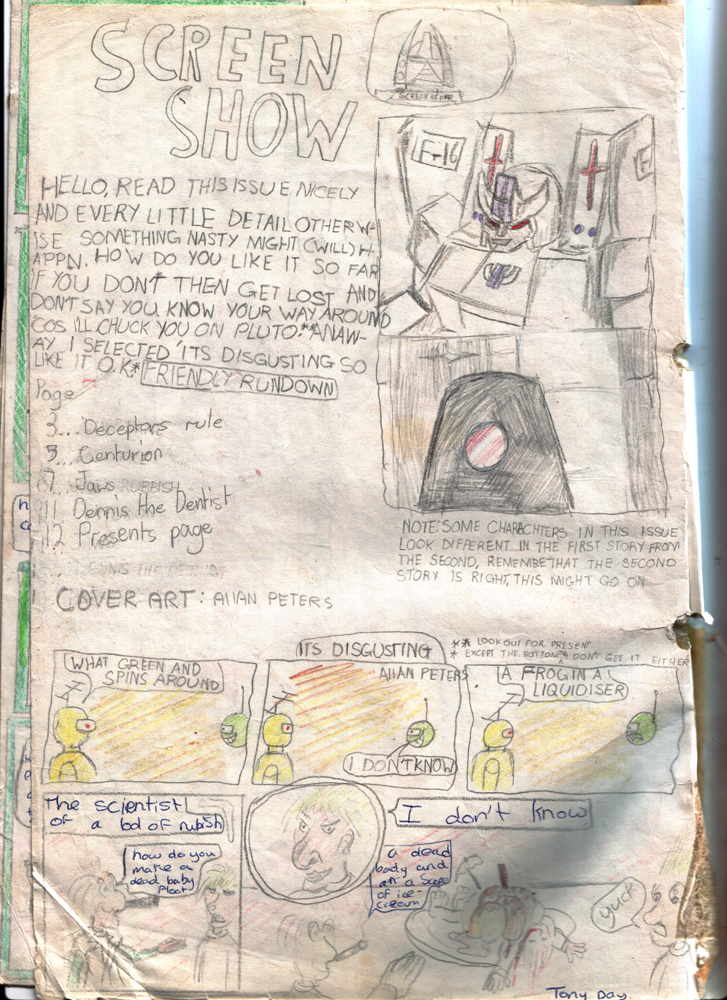 SCREEN
SHOW
HELLO, READ THIS ISSUE NICELY
AND EVERY LITTLE DETAIL OTHERW-
ISE SOMETHING NASTY MIGHT (WILL) H-
APPN. HOW DO YOU LIKE IT SO FAR
IF YOU DON'T THEN GET LOST AND
DON'T SAY YOU KNOW YOUR WAY AROUND
COS I'LL CHUCK YOU ON PLUTO.** ANAW-
AY I SELECTED 'ITS DISGUSTING SO
LIKE IT O.K* FRIENDLY RUNDOWN
Page
3... Deceptors rule
5... Centurion
7. Jaws RUBBISH
11 Dennis the Dentist
12 Presents page
COVER ART: Allan PETERS
F-16
NOTE: SOME CHARACHTERS IN THIS ISSUE
LOOK DIFFERENT IN THE FIRST STORY FROM
THE SECOND, REMEMBE THAT THE SECOND
STORY IS RIGHT, THIS MIGHT GO ON
** LOOK OUT FOR PRESENT
* EXCEPT THE BOTTOM, I DON'T GET IT EITHER
ITS DISGUSTING
Allan PETERS
WHAT GREEN AND
SPINS AROUND
I DON'T KNOW
A FROG IN A
LIQUIDISER
The scientist
of a lod of rubish
how do you
make a
dead baby
float
I don't know
a dead
body and
an a scoop
of ice
cream
yuck
Tony Day